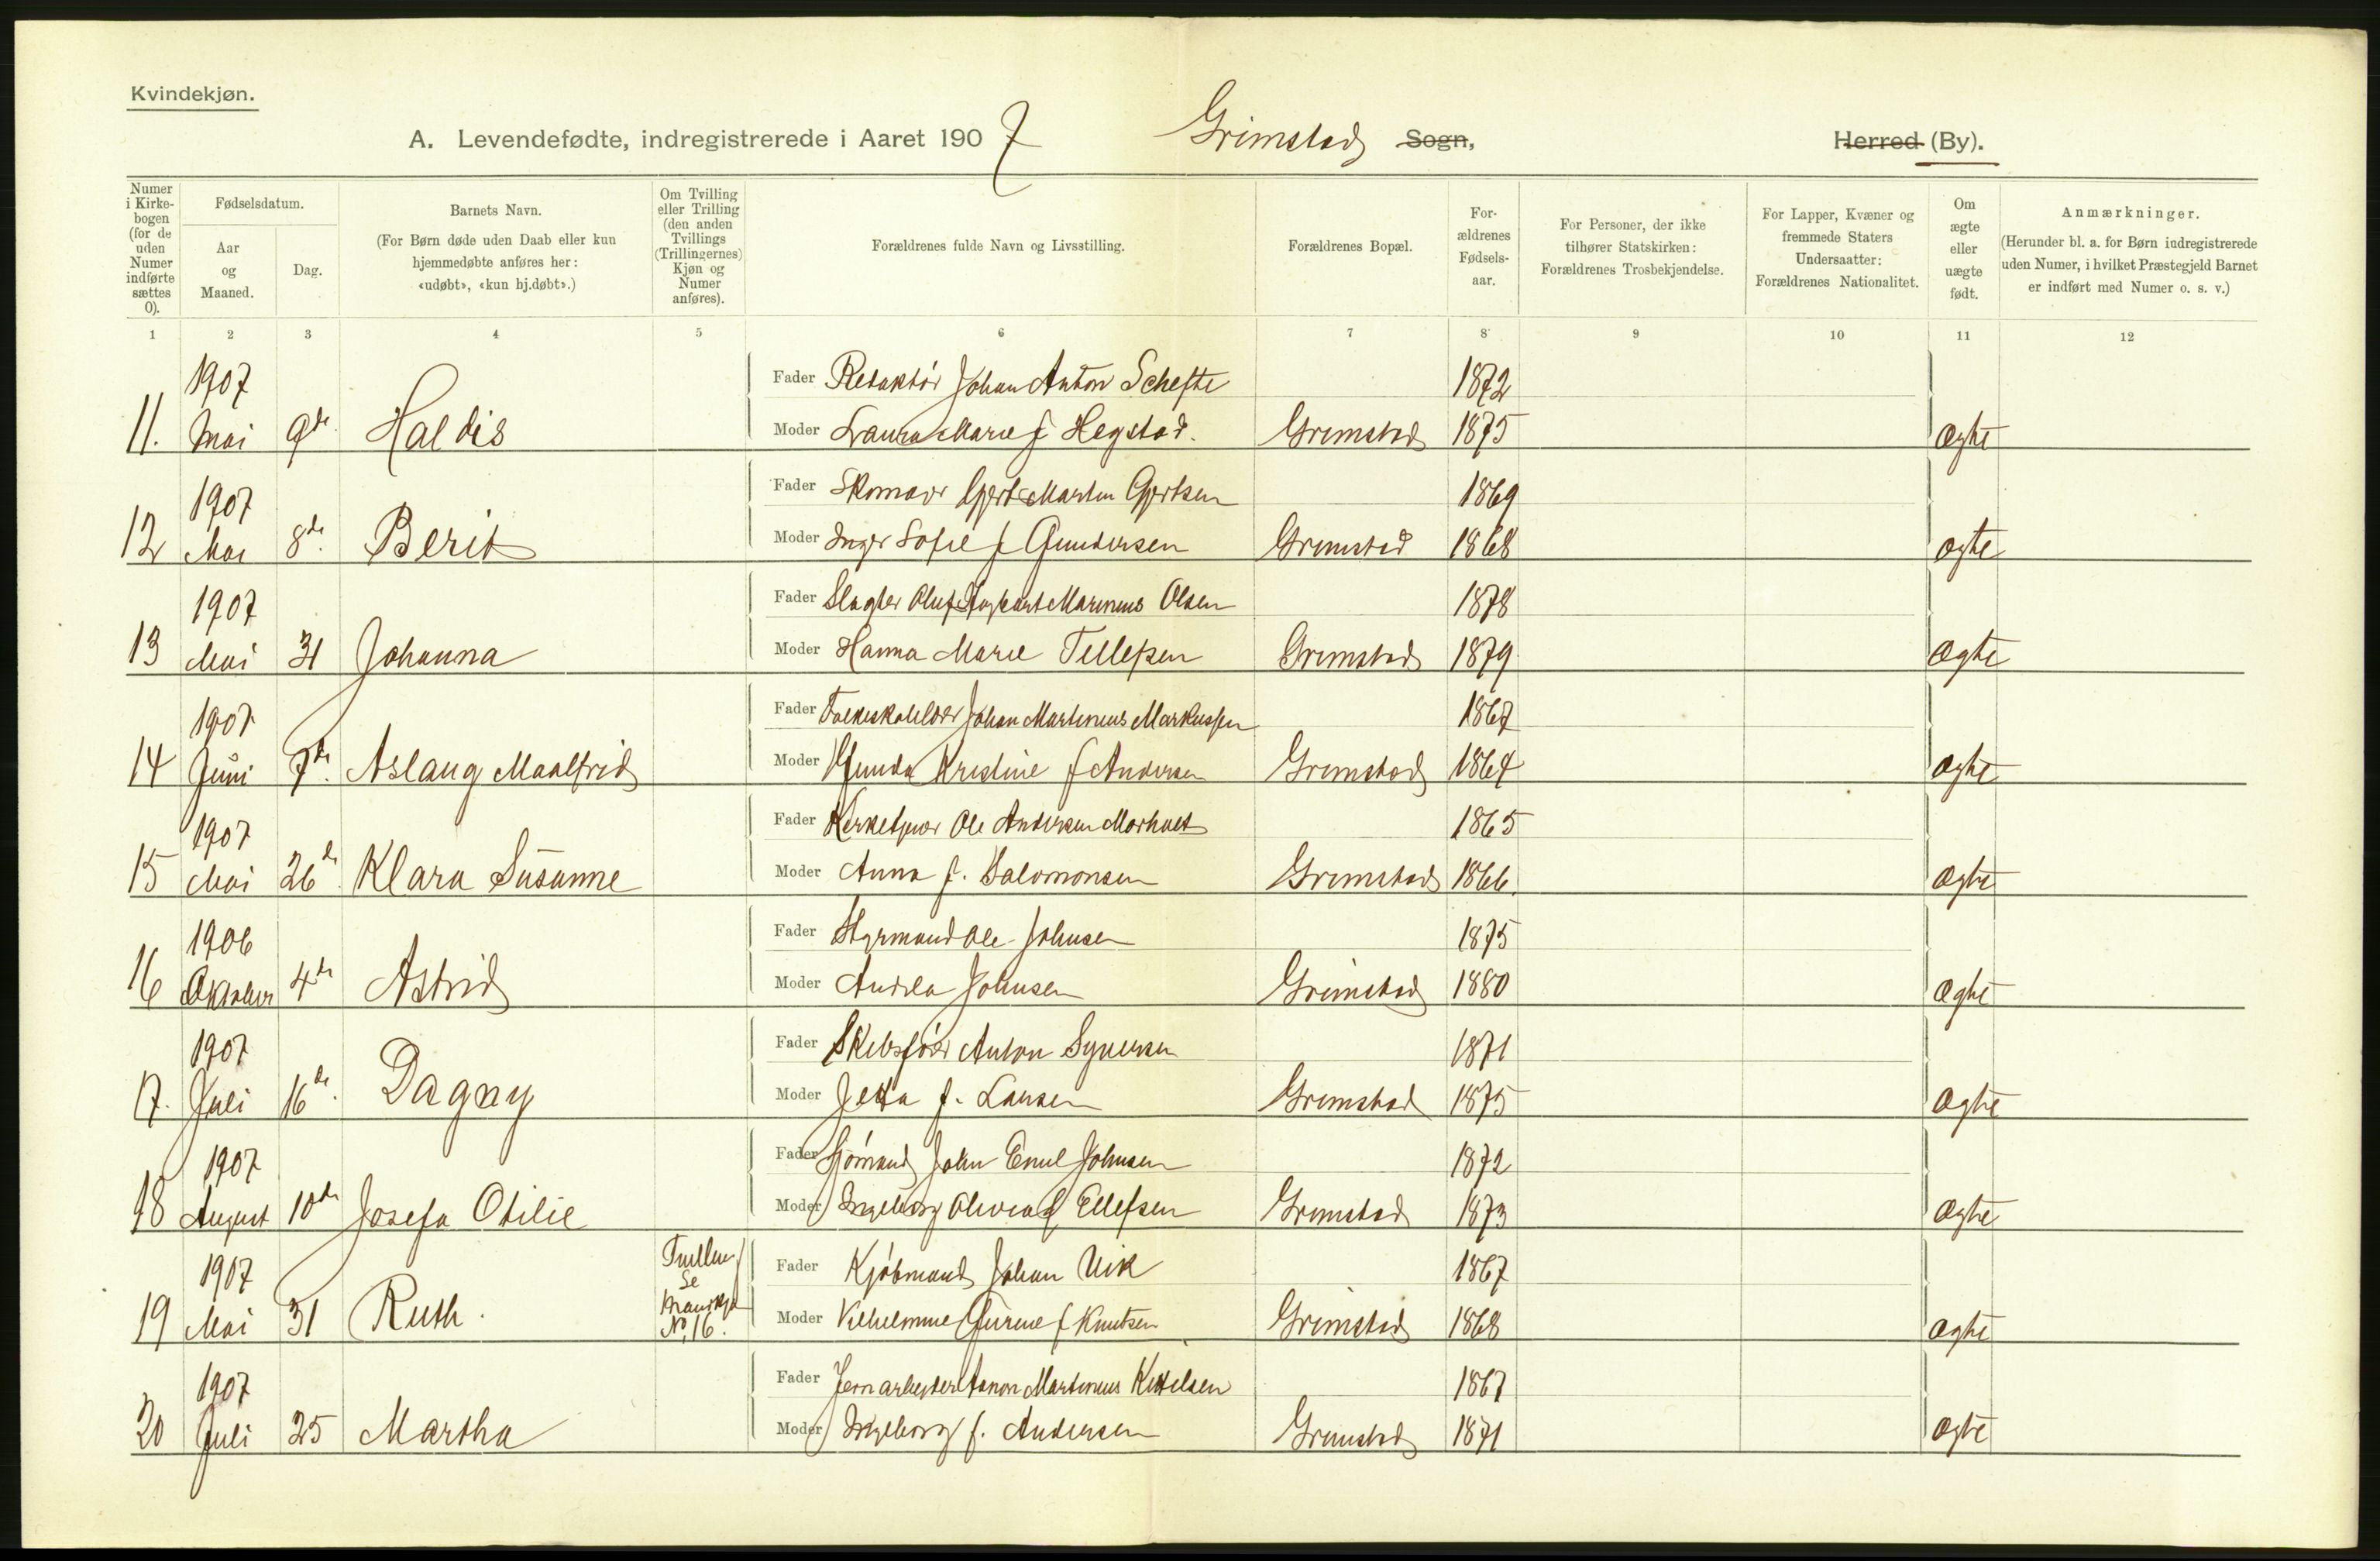 Kvindekjøn.
A. Levendefødte, indregistrerede i Aaret 1907 Grimstad Sogn, Herred (By).
Numer i Kirkebogen (for de uden Numer indførte sættes 0).
Fødselsdatum.
Aar og Maaned.
Dag.
Barnets Navn.
(For Børn døde uden Daab eller kun hjemmedøbte anføres her: «udøbt», «kun hj.døbt».)
Om Tvilling eller Trilling (den anden Tvillings (Trillingernes) Kjøn og Numer anføres).
Forældrenes fulde Navn og Livsstilling.
Forældrenes Bopæl.
Forældrenes Fødselsaar.
For Personer, der ikke tilhører Statskirken: Forældrenes Trosbekjendelse.
For Lapper, Kvæner og fremmede Staters Undersaatter: Forældrenes Nationalitet.
Om ægte eller uægte født.
Anmærkninger.
(Herunder bl. a. for Børn indregistrerede uden Numer, i hvilket Præstegjeld Barnet er indført med Numer o. s. v.)
1 2 3 4 5 6 7 8 9 10 11 12
1907 Fader Redaktör Johan Anton Schefte 1872
11. Mai 9de Haldis Moder Laura Marie f Hegstad. Grimstad 1875 Ægte
1907 Fader Skomager Gjert Martin Gjertsen 1869
12 Mai 8de. Berit Moder Inger Sofie f Gundersen Grimstad 1868 ægte
1907 Fader Slagter Oluf Marinius Olsen 1878
13 Mai 31 Johanna Moder Hanna Marie Tellefsen Grimstad 1879 Ægte
1907 Fader Johan Martinius Markussen 1867
14 Juni 7de. Aslaug Maalfrid Moder Gunda Kristine f Andersen Grimstad 1864 Ægte
1907 Fader Ole Andersen Morholt 1865
15 Mai 26de. Klara Susanne Moder Anna f. Salomonsen Grimstad 1866. Ægte
1906 Fader Styrmand Ole Johnsen 1875
16 Oktober 4de Astrid Moder Andrea Johnsen Grimstad 1880 Ægte
1907 Fader Skibsfører Anton Syversen 1871
17. Juli 16de. Dagny Moder Jetta f. Larsen Grimstad 1875 Ægte
1907 Fader Sjömand John Emil Johnsen 1872
18 August 10de Josefa Otilie Moder Ingeborg Olivia f Ellefsen Grimstad 1873 Ægte
1907 Tvilling Se Mandkjøn No 16. Fader Kjöbmand Johan Vik 1867
19 Mai 31 Ruth. Moder Vilhelmine f Knutsen Grimstad 1868 Ægte
1907 Fader Jernarbeider Anton Martinius Kittelsen 1867
20 Juli 25 Martha Moder Ingeborg f. Andersen Grimstad 1871 Ægte